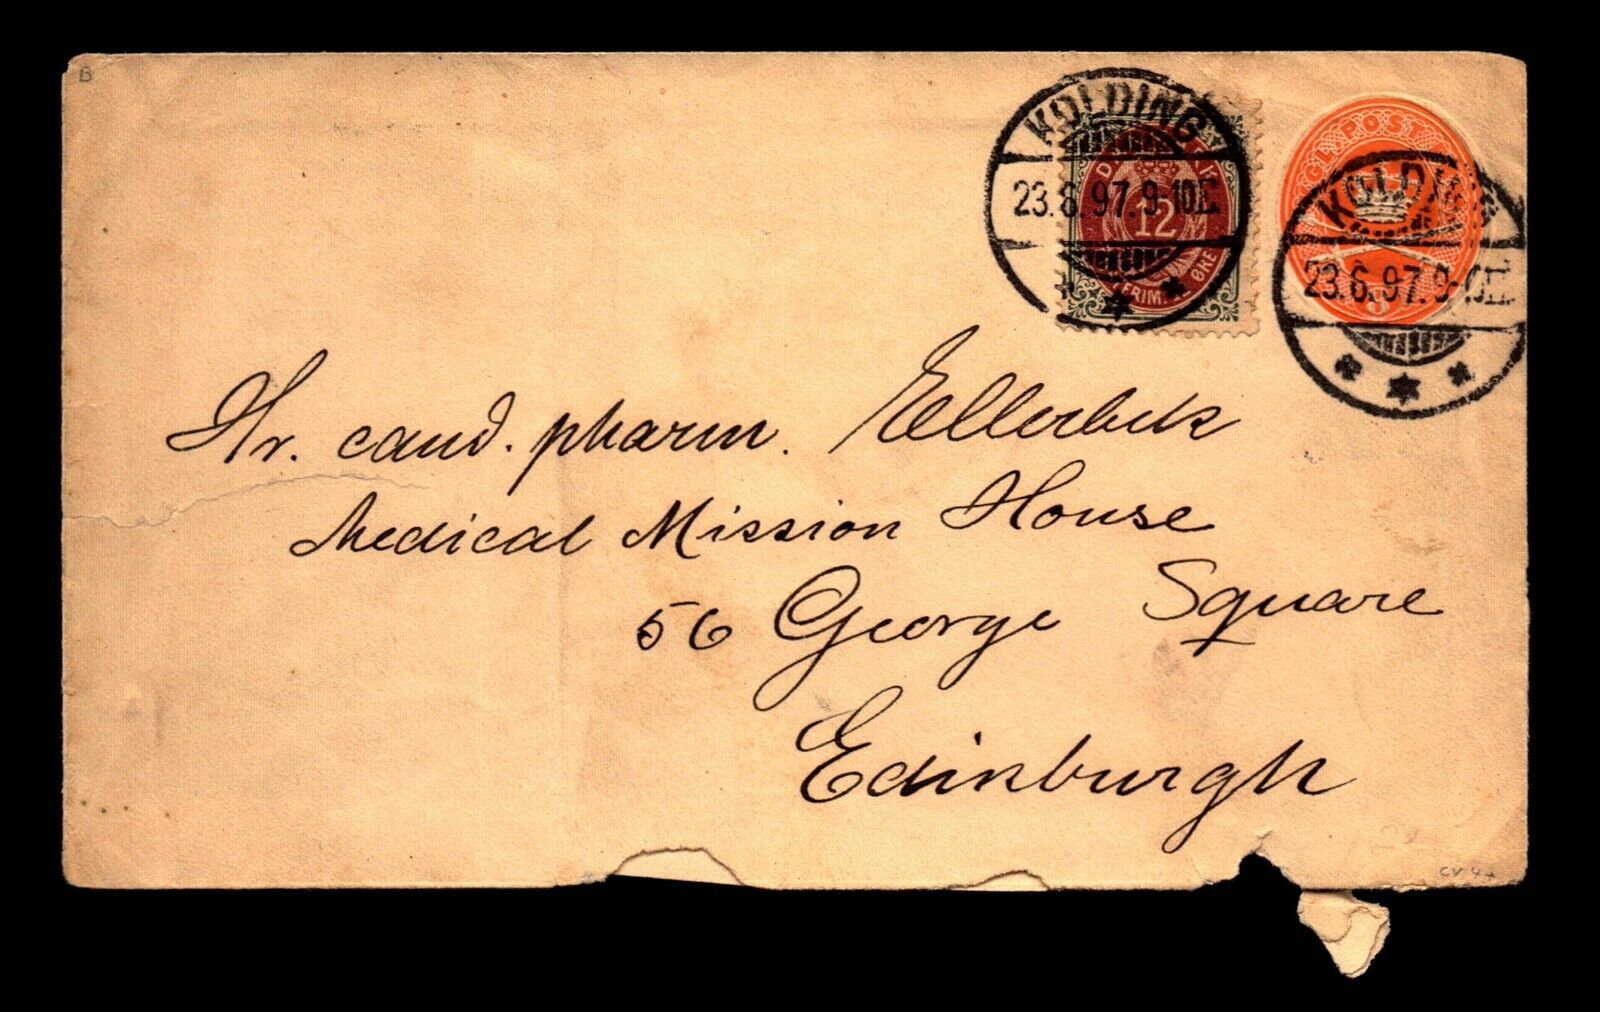 B
KOLDING
23.6.97.9-10E.
12
KGL POST
KOLDING
23.6.97.9-10E.
8
Hr. cand. pharm. Ellerbek
Medical Mission House
56 George Square
Edinburgh